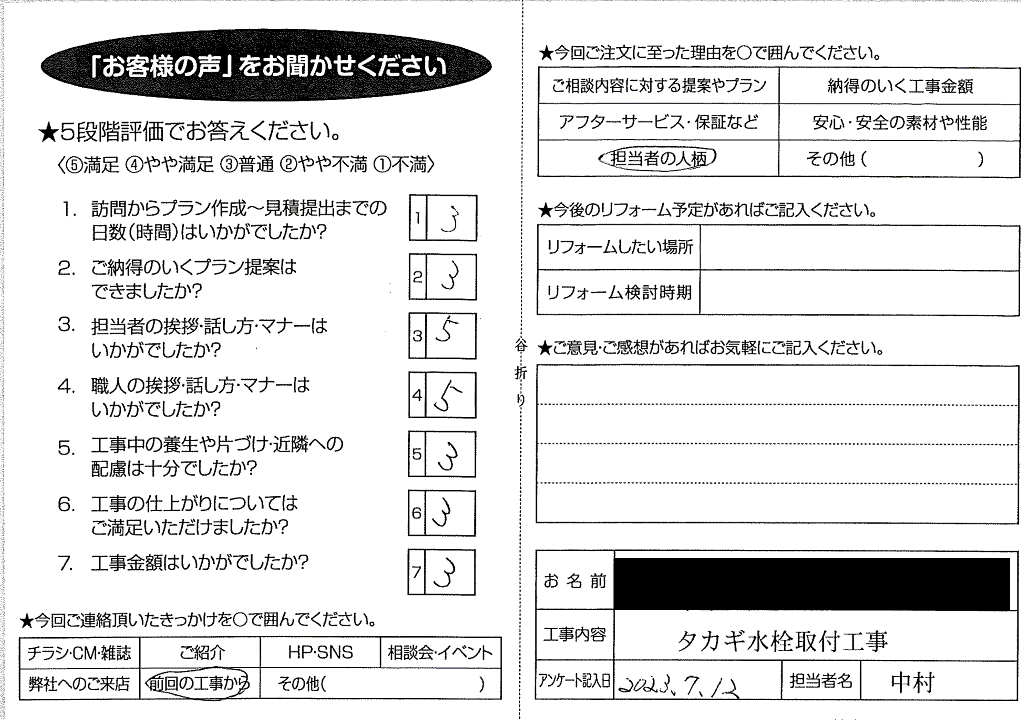 「お客様の声」をお聞かせください
★5段階評価でお答えください。
〈⑤満足 ④やや満足 ③普通 ②やや不満 ①不満〉
1. 訪問からプラン作成〜見積提出までの
日数(時間)はいかがでしたか?
1 3
2. ご納得のいくプラン提案は
できましたか?
2 3
3. 担当者の挨拶・話し方・マナーは
いかがでしたか?
3 5
4. 職人の挨拶・話し方・マナーは
いかがでしたか?
4 5
5. 工事中の養生や片づけ・近隣への
配慮は十分でしたか?
5 3
6. 工事の仕上がりについては
ご満足いただけましたか?
6 3
7. 工事金額はいかがでしたか?
7 3
★今回ご連絡頂いたきっかけを○で囲んでください。
チラシ・CM・雑誌 ご紹介 HP・SNS 相談会・イベント
弊社へのご来店 前回の工事から その他( )
谷折り
★今回ご注文に至った理由を○で囲んでください。
ご相談内容に対する提案やプラン 納得のいく工事金額
アフターサービス・保証など 安心・安全の素材や性能
担当者の人柄 その他( )
★今後のリフォーム予定があればご記入ください。
リフォームしたい場所
リフォーム検討時期
★ご意見・ご感想があればお気軽にご記入ください。
お名前
工事内容 タカギ水栓取付工事
アンケート記入日 2023.7.12 担当者名 中村